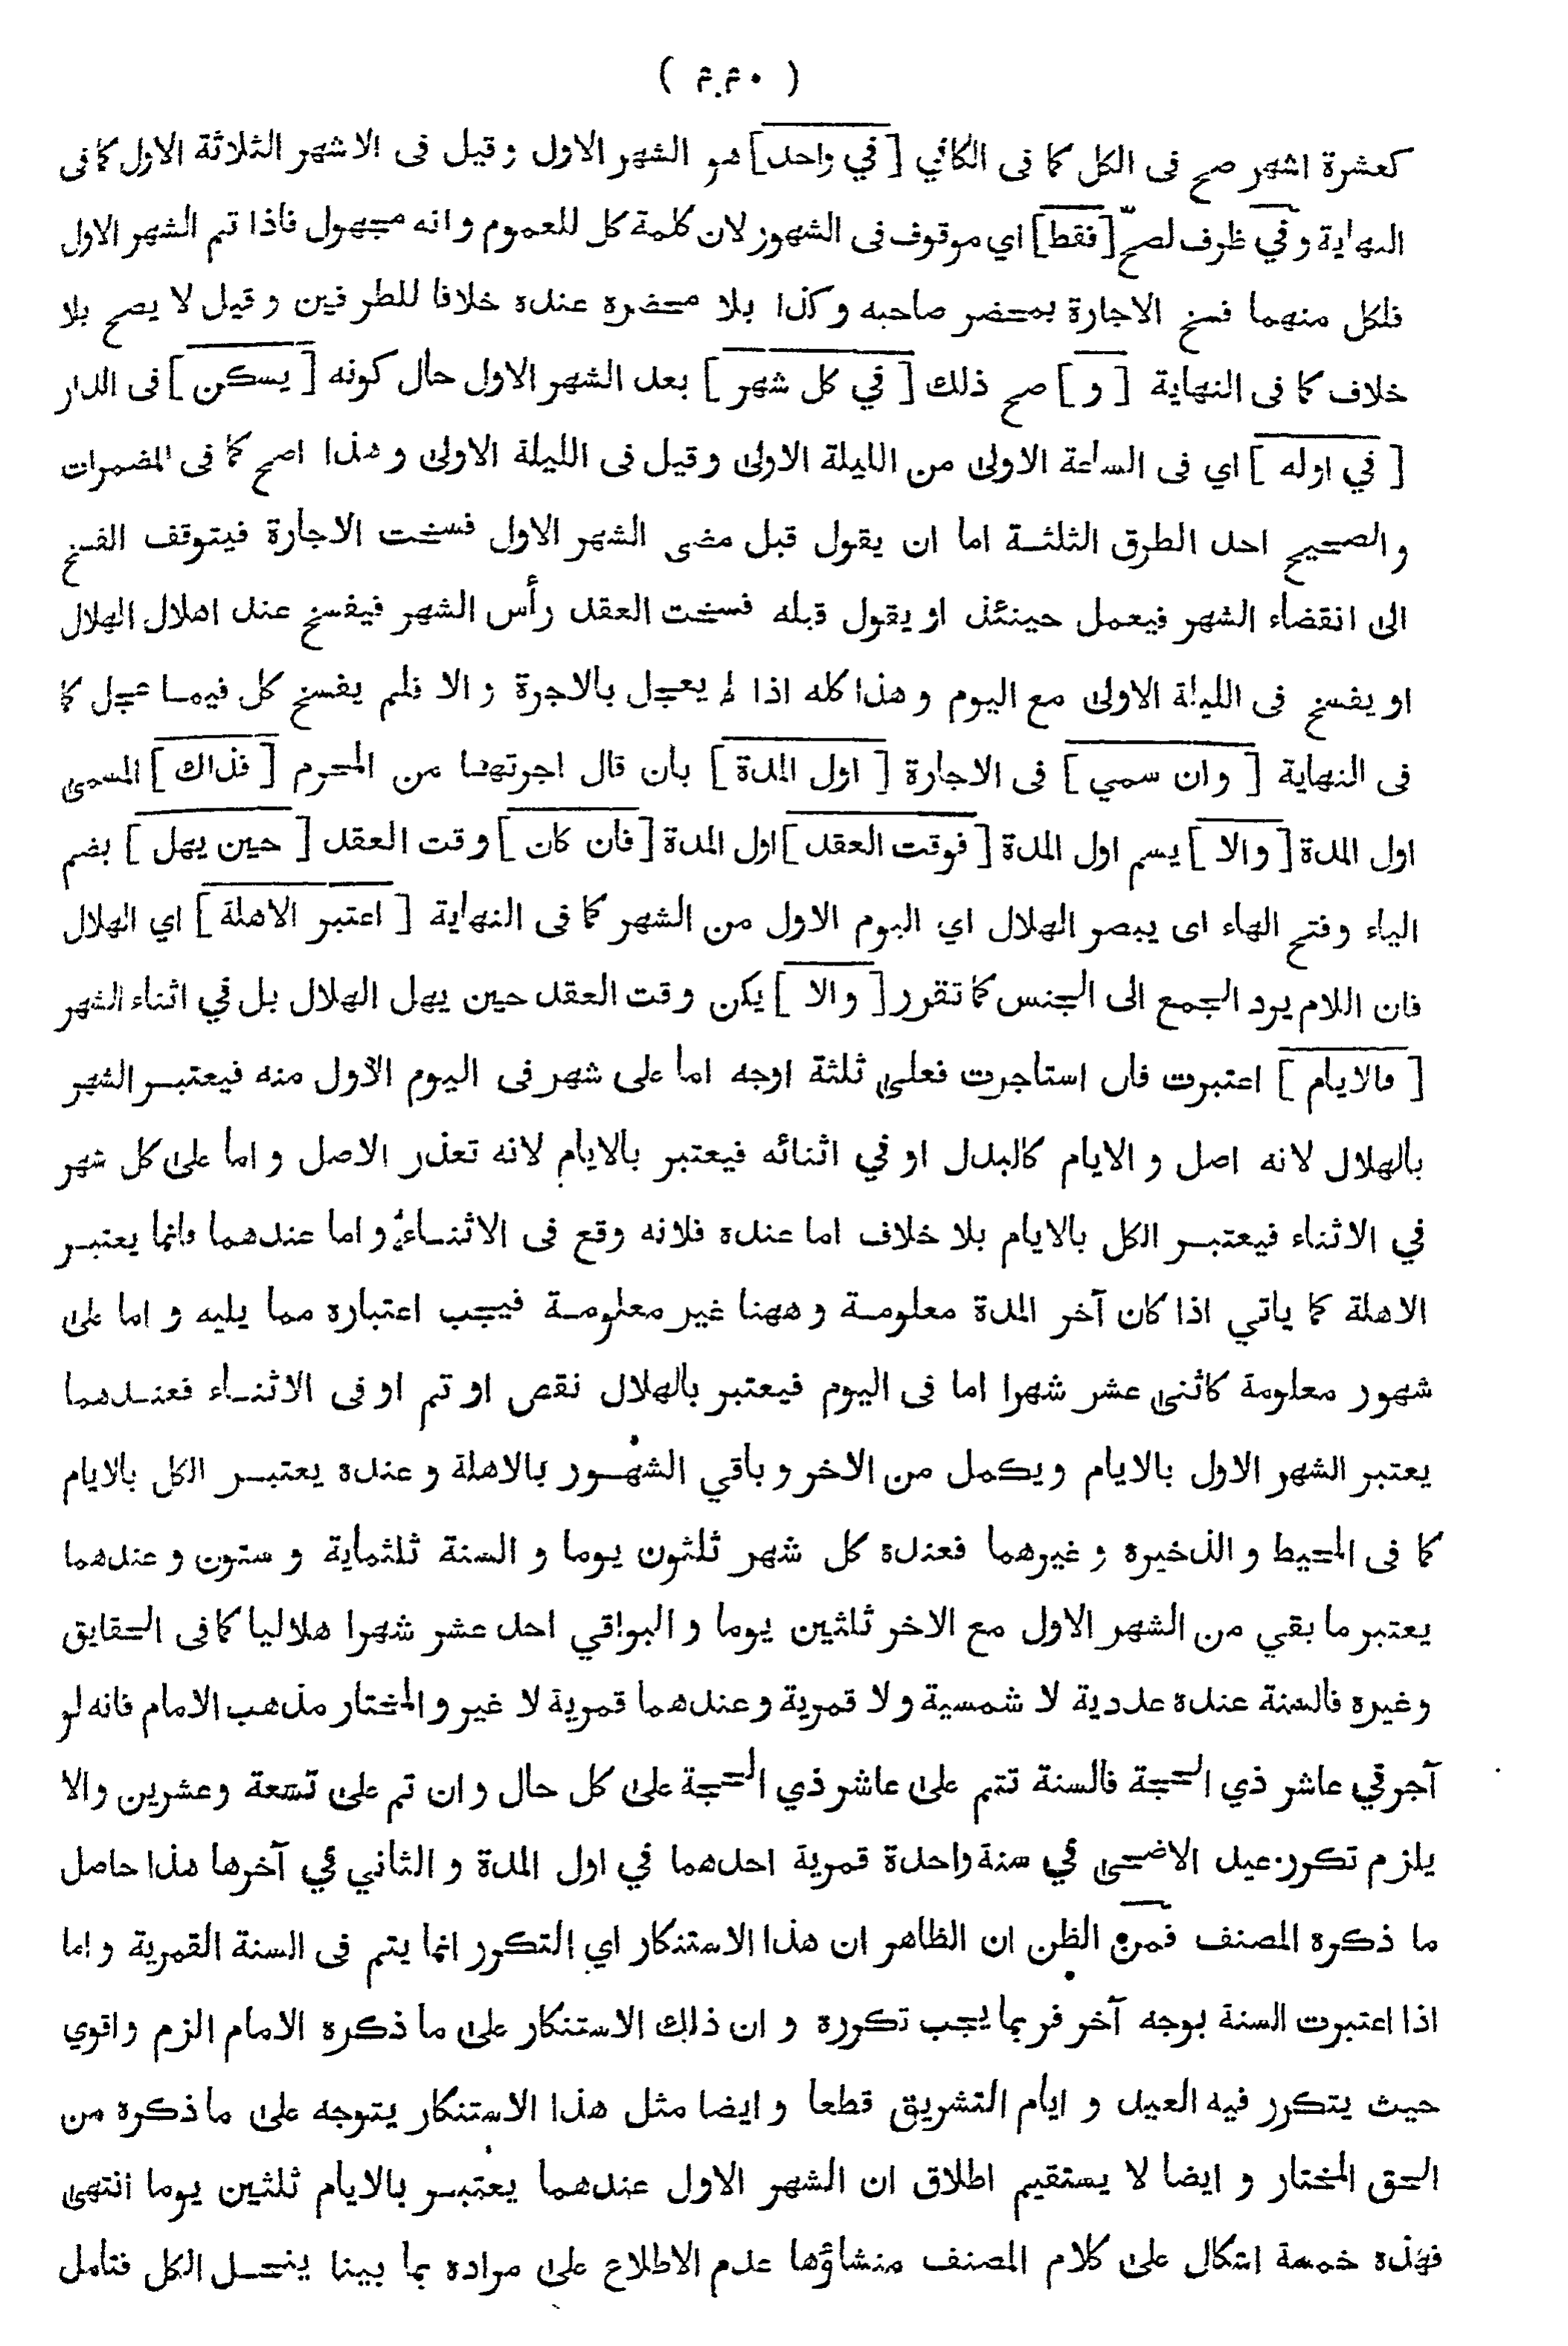 كعشرة اشهر صح فى الكل كما فى الكافي [ في واحد ] هو الشهر الاول و قيل فى الاشهر الثلاثة الاول كما فى
النهاية و في ظرف لصح [ فقط ] اي موقوف فى الشهور لان كلمة كل للعموم و انه مجهول فاذا تم الشهر الاول
فلكل منهما فسخ الاجارة بمحضر صاحبه و كذا بلا محضره عنده خلافا للطرفين و قيل لا يصح بلا
خلاف كما فى النهاية [ و ] صح ذلك [ في كل شهر ] بعد الشهر الاول حال كونه [ يسكن ] فى الدار
[ في اوله ] اي فى الساعة الاولى من الليلة الاولى و قيل فى الليلة الاولى و هذا اصح كما فى المضمرات
و الصحيح احد الطرق الثلثة اما ان يقول قبل مضى الشهر الاول فسخت الاجارة فيتوقف الفسخ
الى انقضاء الشهر فيعمل حينئذ او يقول قبله فسخت العقد رأس الشهر فيفسخ عند اهلال الهلال
او يفسخ فى الليلة الاولى مع اليوم و هذا كله اذا لم يعجل بالاجرة و الا فلم يفسخ كل فيما عجل كما
فى النهاية [ و ان سمي ] فى الاجارة [ اول المدة ] بان قال اجرتها من المحرم [ فذاك ] المسمى
اول المدة [ و الا ] يسم اول المدة [ فوقت العقد ] اول المدة [ فان كان ] وقت العقد [ حين يهل ] بضم
الياء و فتح الهاء اى يبصر الهلال اي اليوم الاول من الشهر كما فى النهاية [ اعتبر الاهلة ] اي الهلال
فان اللام يرد الجمع الى الجنس كما تقرر [ و الا ] يكن وقت العقد حين يهل الهلال بل في اثناء الشهر
[ فالايام ] اعتبرت فان استاجرت فعلى ثلثة اوجه اما على شهر فى اليوم الاول منه فيعتبر الشهر
بالهلال لانه اصل و الايام كالبدل او في اثنائه فيعتبر بالايام لانه تعذر الاصل و اما على كل شهر
في الاثناء فيعتبر الكل بالايام بلا خلاف اما عنده فلانه وقع فى الاثناء و اما عندهما فانما يعتبر
الاهلة كما ياتي اذا كان آخر المدة معلومة و ههنا غير معلومة فيجب اعتباره مما يليه و اما على
شهور معلومة كاثنى عشر شهرا اما فى اليوم فيعتبر بالهلال نقص او تم او فى الاثناء فعندهما
يعتبر الشهر الاول بالايام و يكمل من الاخر و باقي الشهور بالاهلة و عنده يعتبر الكل بالايام
كما فى المحيط و الذخيرة و غيرهما فعنده كل شهر ثلثون يوما و السنة ثلثماية و ستون و عندهما
يعتبر ما بقي من الشهر الاول مع الاخر ثلثين يوما و البواقي احد عشر شهرا هلاليا كما فى الحقايق
و غيره فالسنة عنده عددية لا شمسية و لا قمرية و عندهما قمرية لا غير و المختار مذهب الامام فانه لو
آجر في عاشر ذي الحجة فالسنة تتم على عاشر ذي الحجة على كل حال و ان تم على تسعة و عشرين و الا
يلزم تكرر عيد الاضحى في سنة واحدة قمرية احدهما في اول المدة و الثاني في آخرها هذا حاصل
ما ذكره المصنف فمن الظن ان الظاهر ان هذا الاستنكار اي التكرر انما يتم فى السنة القمرية و اما
اذا اعتبرت السنة بوجه آخر فربما يجب تكرره و ان ذلك الاستنكار على ما ذكره الامام الزم و اقوي
حيث يتكرر فيه العيد و ايام التشريق قطعا و ايضا مثل هذا الاستنكار يتوجه على ما ذكره من
الحق المختار و ايضا لا يستقيم اطلاق ان الشهر الاول عندهما يعتبر بالايام ثلثين يوما انتهى
فهذه خمسة اشكال على كلام المصنف منشاؤها عدم الاطلاع على مراده بما بينا ينحل الكل فتامل